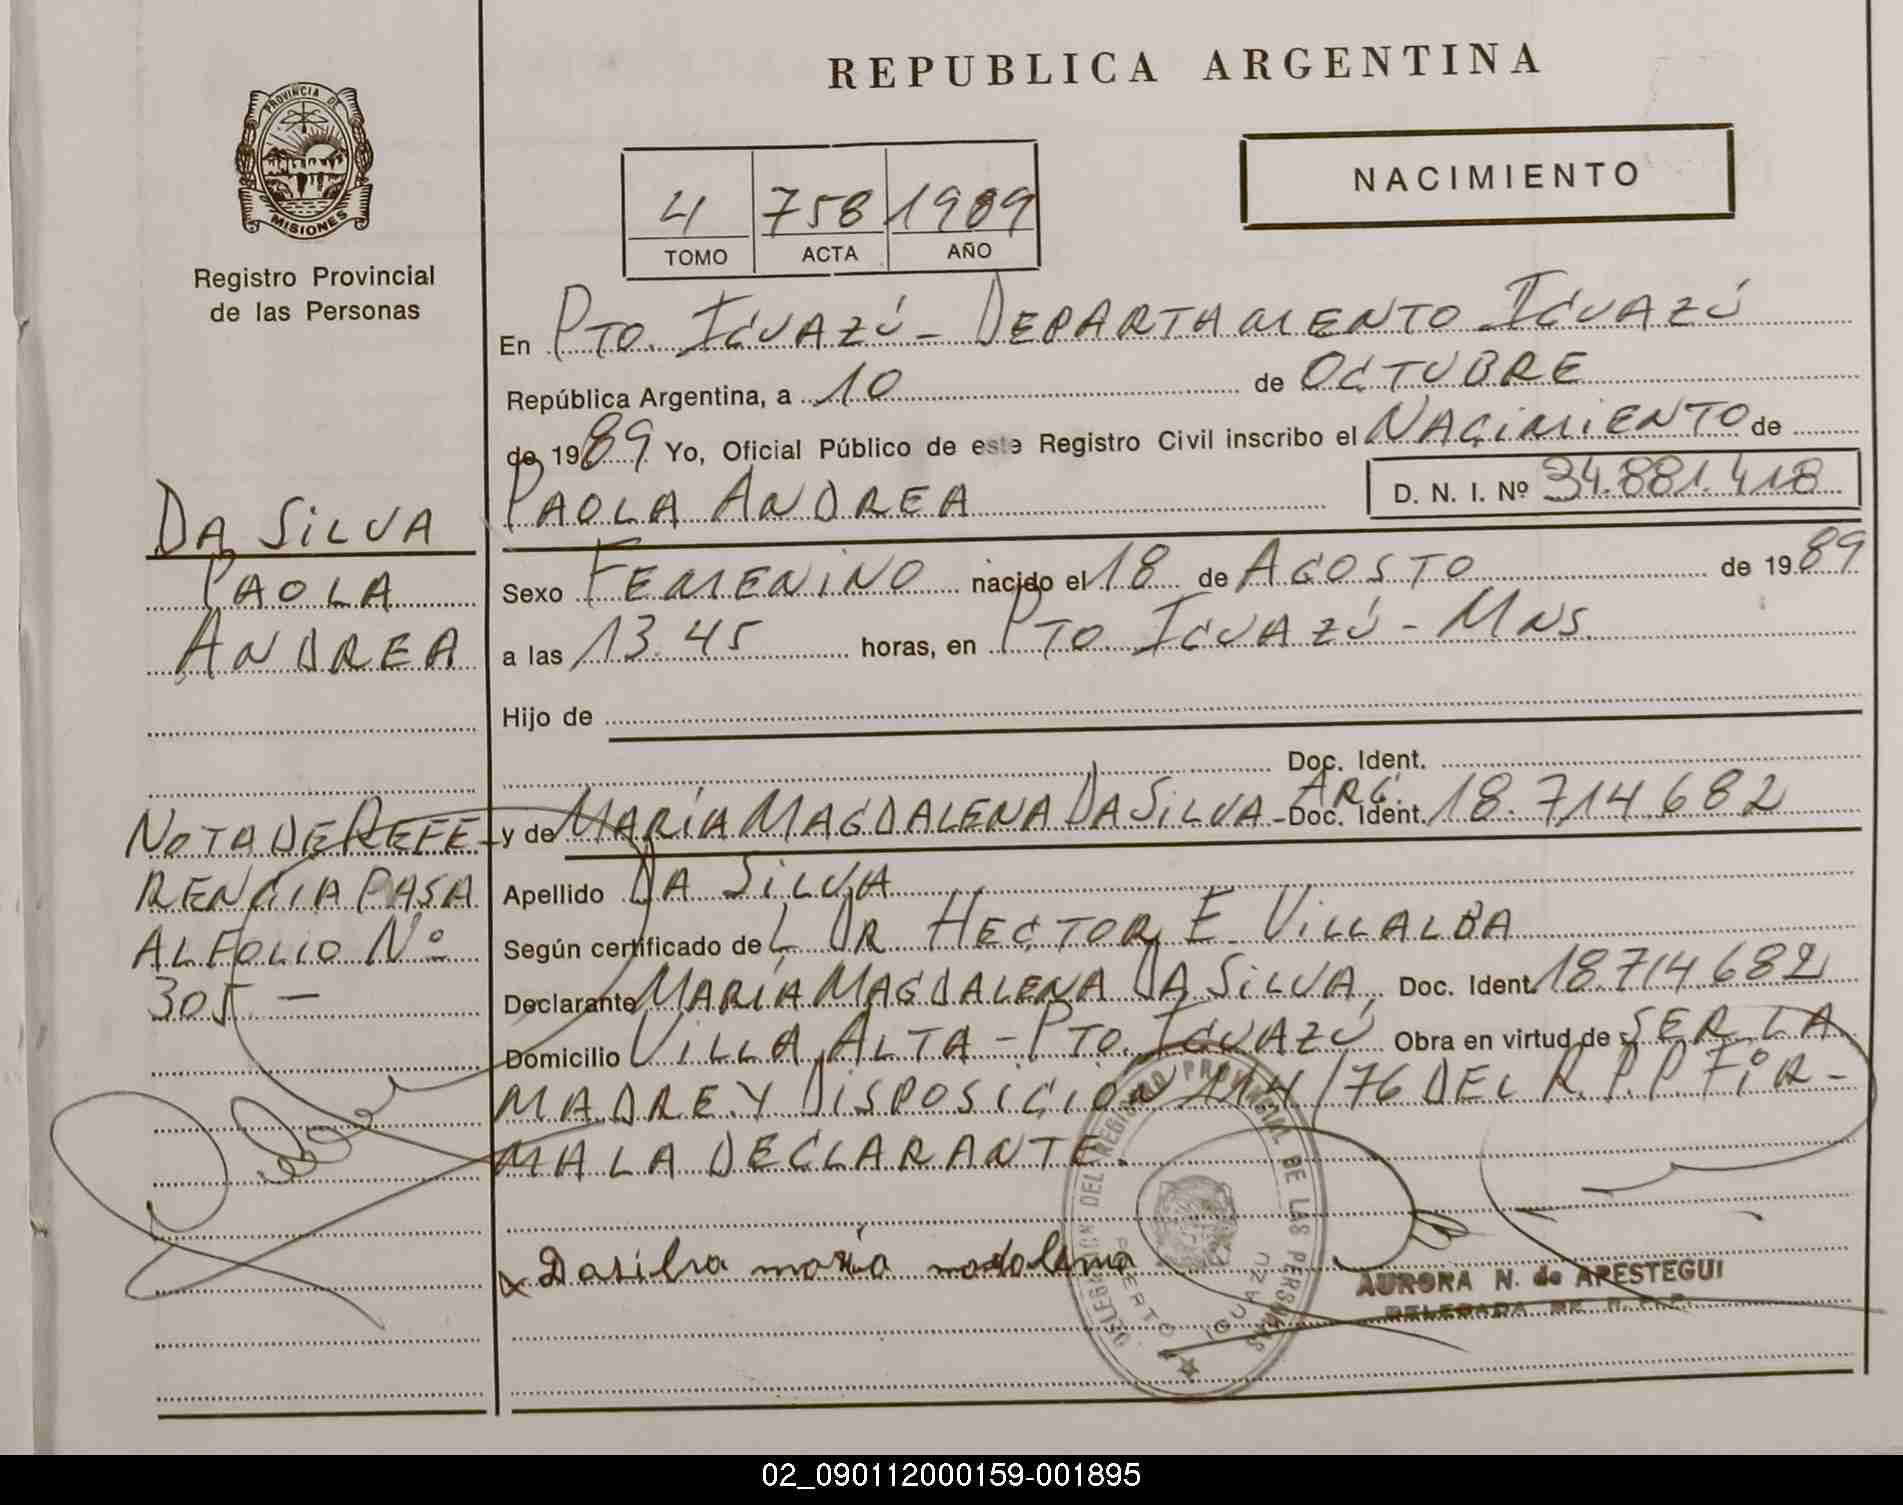 REPUBLICA ARGENTINA
PROVINCIA DE
MISIONES
Registro Provincial
de las Personas
NACIMIENTO
4 758 1989
TOMO ACTA AÑO
En PTO. IGUAZÚ - DEPARTAMENTO IGUAZÚ
República Argentina, a 10 de OCTUBRE
de 1989 Yo, Oficial Público de este Registro Civil inscribo el NACIMIENTO de
PAOLA ANDREA D. N. I. Nº 34.881.418
DA SILVA
PAOLA
ANDREA
Sexo FEMENINO nacido el 18 de AGOSTO de 1989
a las 13.45 horas, en PTO. IGUAZÚ - MNS.
Hijo de
Doc. Ident.
ARG.
y de MARÍA MAGDALENA DA SILVA - Doc. Ident. 18.714.682
Apellido DA SILVA
Según certificado de L DR HECTOR E. VILLALBA
Declarante MARÍA MAGDALENA DA SILVA, Doc. Ident. 18.714.682
Domicilio VILLA ALTA - PTO. IGUAZÚ Obra en virtud de SER LA
MADRE Y DISPOSICIÓN 114/76 DEL R.P.P FIR-
MA LA DECLARANTE.
NOTA DE REFE-
RENCIA PASA
AL FOLIO Nº
305 -
Dasilva maria madalena
DELEGACION DEL REGISTRO PROVINCIAL DE LAS PERSONAS
PUERTO IGUAZU
AURORA N. de APESTEGUI
DELEGADA DE R. P. P.
02_090112000159-001895